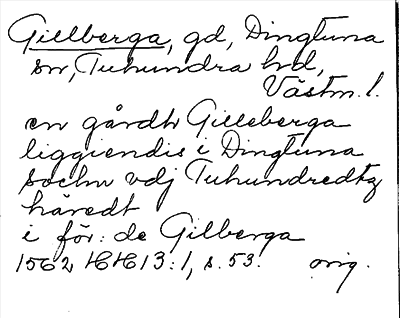 Gillberga, gd, Dingtuna
sn, Tuhundra hd,
Västm. l.
en gårdh Gilleberga
liggiendis i Dingtuna
sochn vdj Tuhundredtz
häredt
i för: de Gilberga
1562 HH 13:1, s. 53. orig.